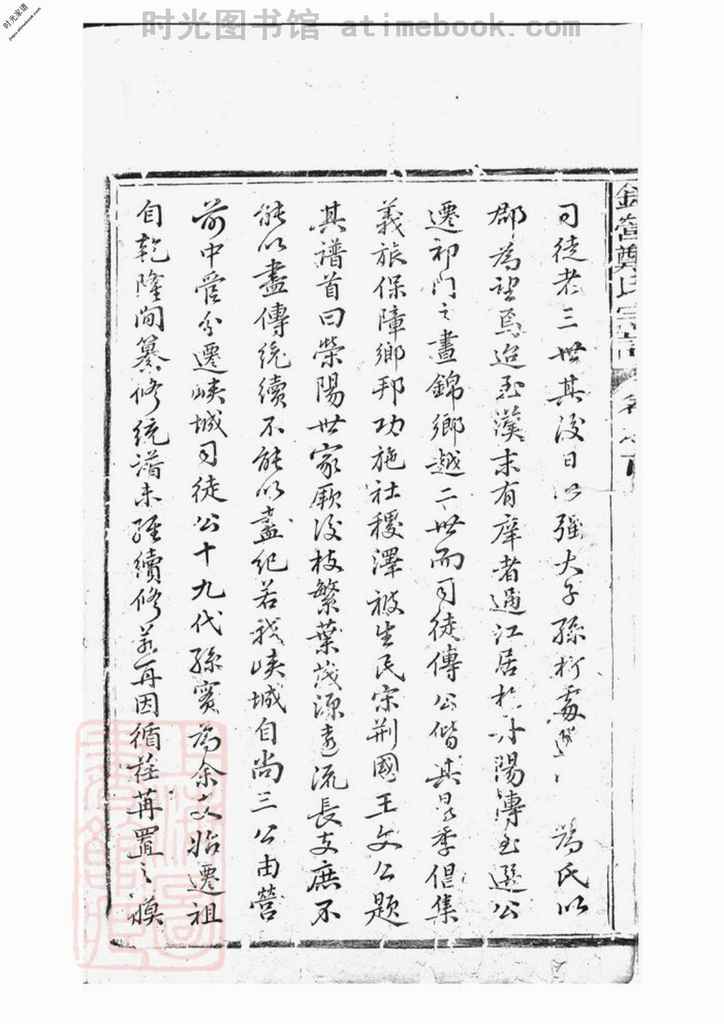 时光图书馆 atimebook.com
时光家谱
鄭氏宗譜
司徒者三世其後日以强大子孫析處 為氏以
郡為望焉迨至漢末有庠者過江居於丹陽傳至選公
遷祁門之晝錦鄉越二世而司徒傳公偕其昆季倡集
義旅保障鄉邦功施社稷澤被生民宋荆國王文公題
其譜首曰榮陽世家厥後枝繁葉茂源遠流長支庶不
能以盡傳統續不能以盡紀若我峽城自尚三公由營
前中營分遷峽城司徒公十九代孫實為余文始遷祖
自乾隆間纂修統譜未經續修若再因循荏苒置之漠